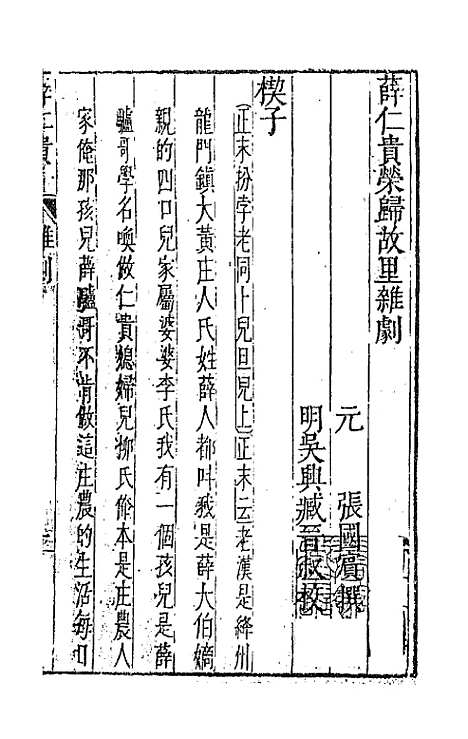 薛仁貴榮歸故里雜劇
元　張國賓撰
明吳興臧晉叔校
楔子
正末扮孛老同卜兒旦兒上正末云老漢是絳州
龍門鎮大黃庄人氏姓薛人都呌我是薛大伯嫡
親的四口兒家屬婆婆李氏我有一個孩兒是薛
驢哥學名喚做仁貴媳婦兒柳氏俺本是庄農人
家俺那孩兒薛驢哥不肯做這庄農的生活每日
薛仁貴　雜劇